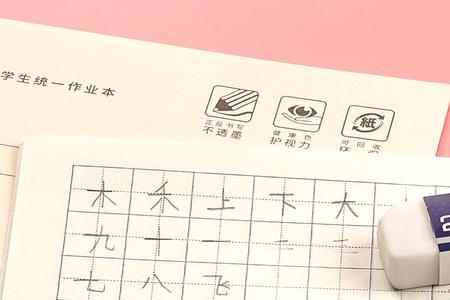 学生统一作业本
正反书写
不透墨
健康色
护视力
紙
可回收
木 禾 上 下 大
九 十 一 二 三
七 八 飞